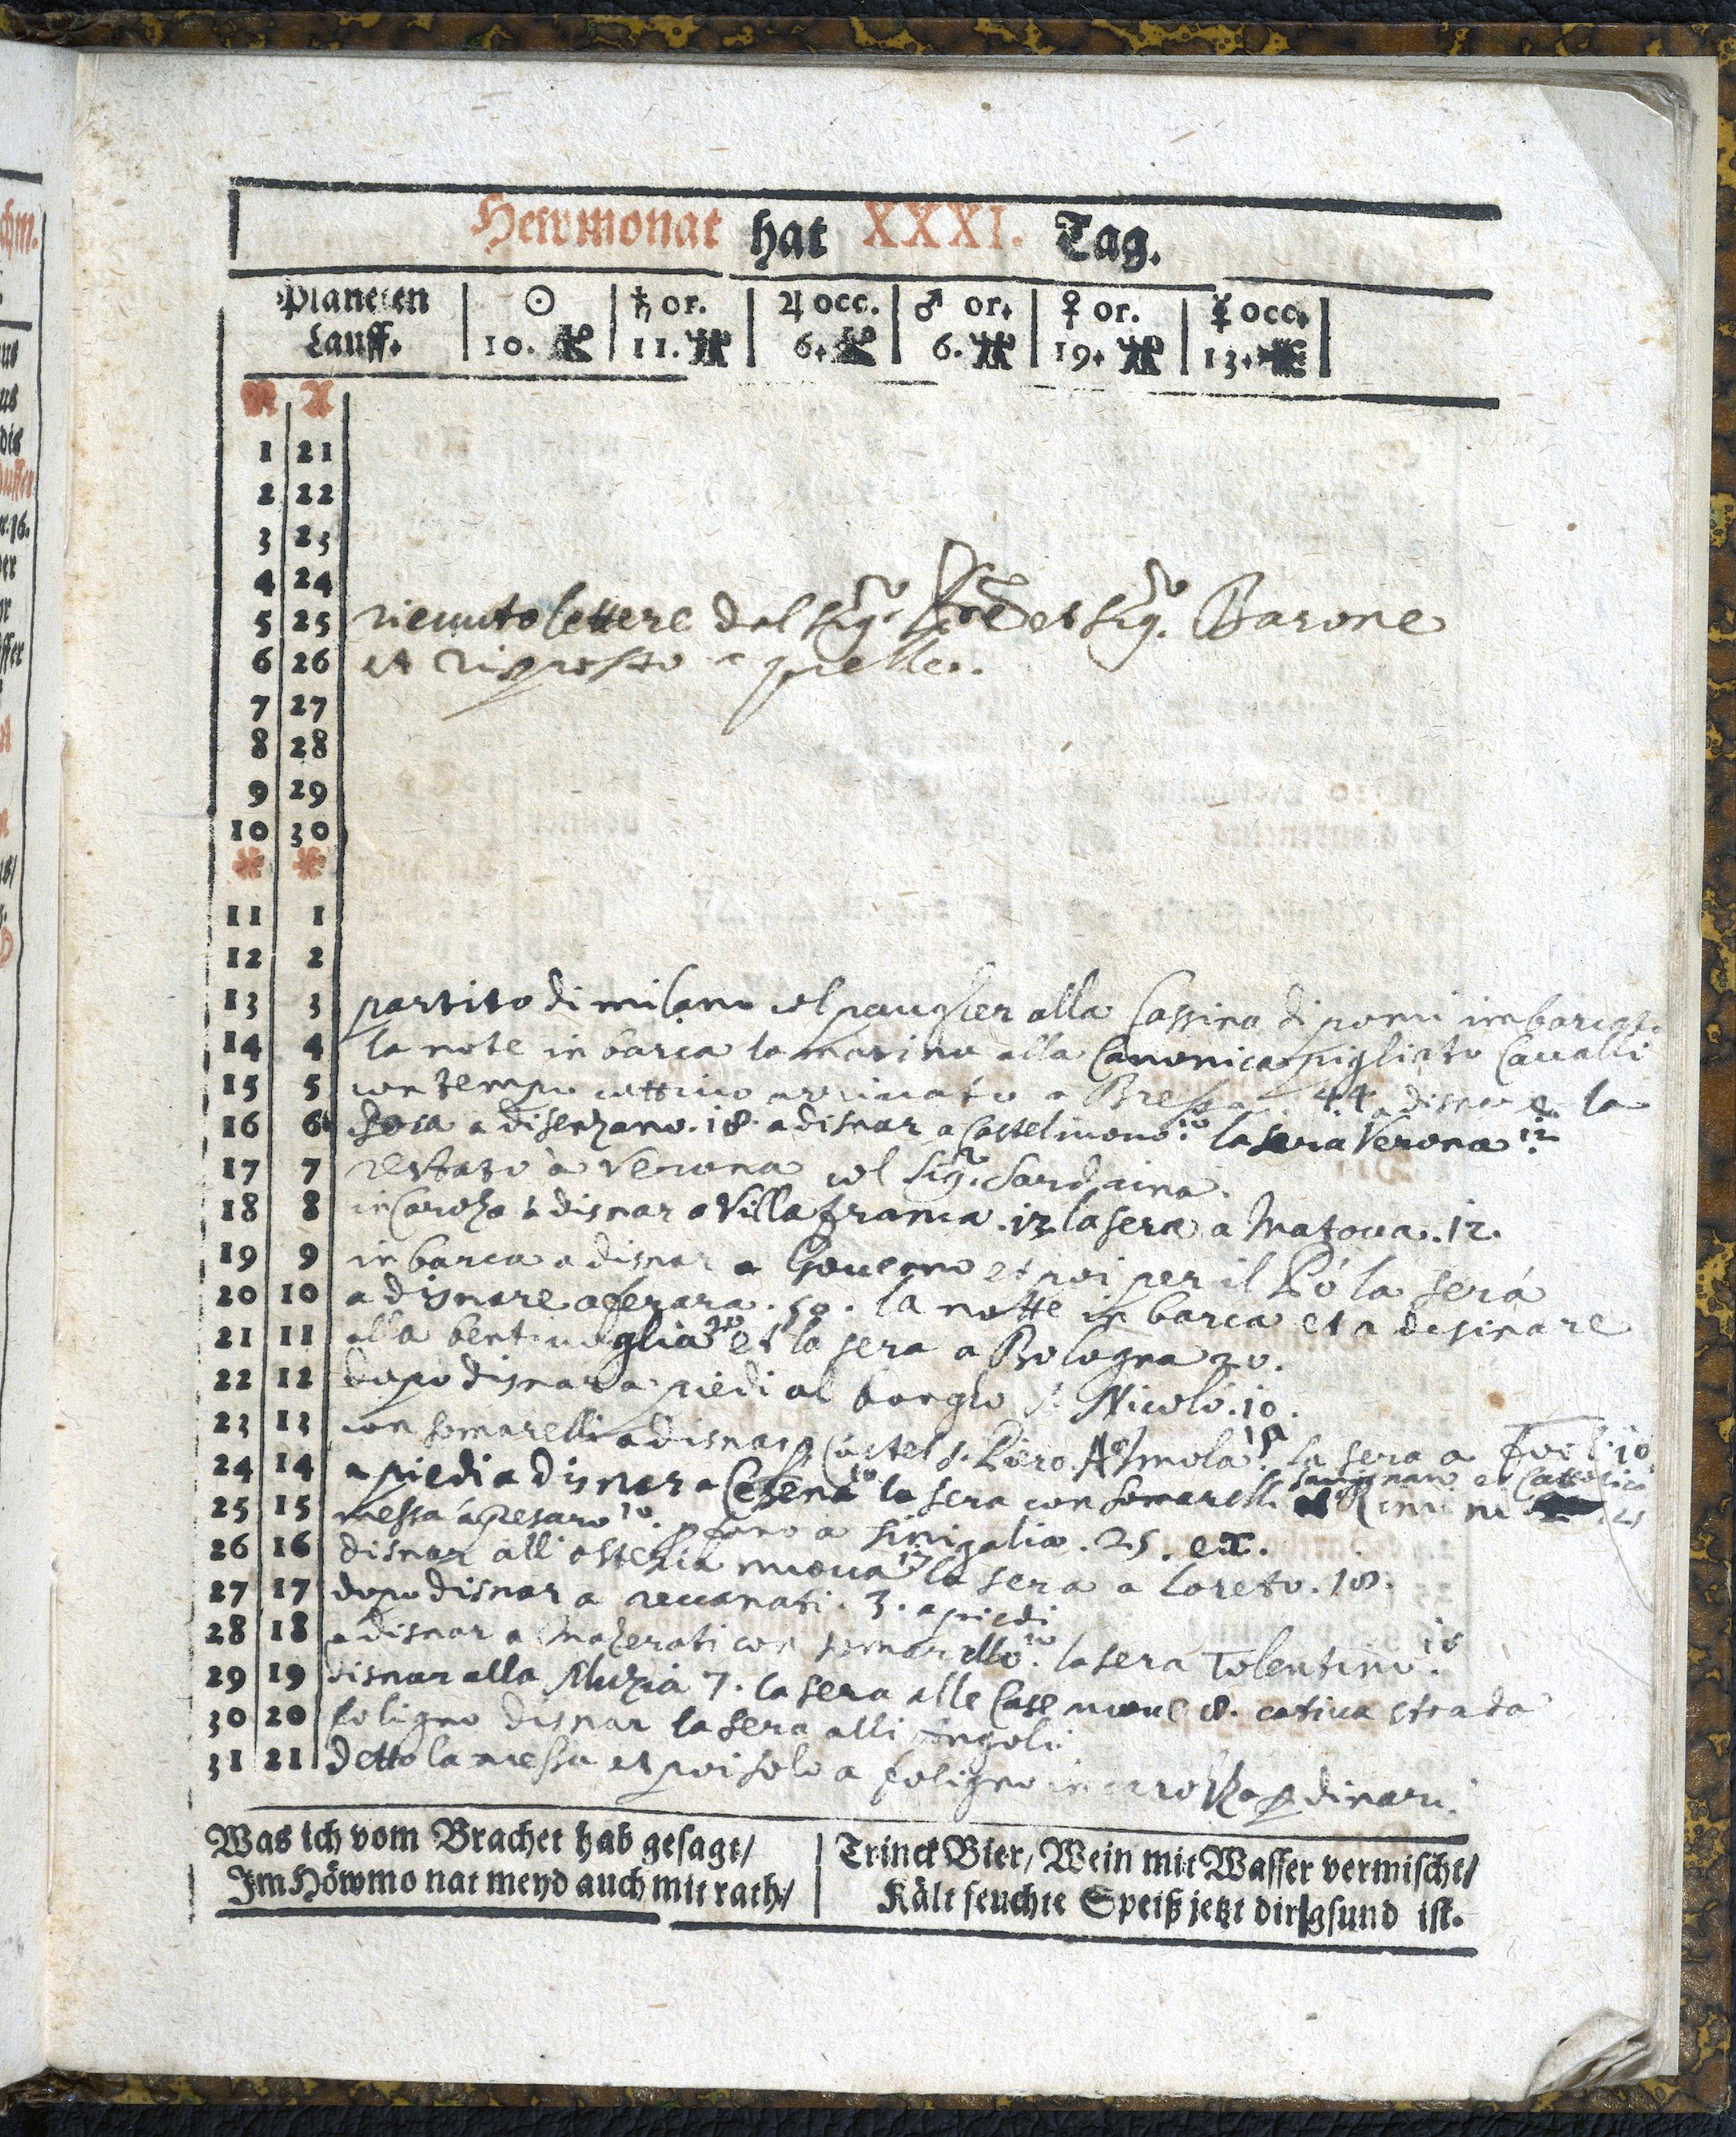 Hewmonat hat XXXI. Tag.
Planeten Lauff. ☉ 10. ♄ or. 11. ♃ occ. 6. ♂ or. 6. ♀ or. 19. ☿ occ. 13.
N A
1 21
2 22
3 23
4 24
5 25 riceuuto lettere dal Sig.r et Sig.r Barone
6 26 et risposto a quelle.
7 27
8 28
9 29
10 30
11 1
12 2
13 3 partito di milano col alla Cassina di pomi imbarcat.
14 4 la note in barca la matina alla Canonica pigliato Caualli
15 5 con tempo cattiuo arriuato a Bressa 44 a disnar e la
16 6 sera a disenzano. 18. a disnar a Castelnouo 10. la sera Verona 12.
17 7 restato à Verona col Sig.r Sardaina.
18 8 in Carozza à disnar a Villa franca. 12 la sera a Matoua. 12.
19 9 in barca a disnar a Gouerno et poi per il Pó la sera
20 10 a disnare a ferara. 50. la notte in barca et a desinare
21 11 alla bentiuoglia 20 et la sera a Bologna 20.
22 12 dopo disnar a piedi al borgho S. Nicoló. 10.
23 13 con somarelli a disnar p Castel S. Piero. A Imola 18. la sera a Forli. 10
24 14 a piedi a disnar a Cesena 10 la sera con somarelli sauignano et Cattolica Rimini 25
25 15 messa á Pesaro 10. p fano a sinigalia. 25. ex.
26 16 disnar all osteria nuoua 17 la sera a loreto. 18.
27 17 dopo disnar a reccanati. 3. a piedi
28 18 a disnar a Mazerati con somarello 10. la sera Tolentino. 10
29 19 disnar alla Muzia 7. la sera alle Case nuoue 8. catiua strada
30 20 foligno disnar la sera alli Angoli
31 21 detto la messa et poi solo a foligno in carozza p dinari.
Was ich vom Brachet hab gesagt/
Im Höwmo nat meyd auch mit rath/
Trinck Bier/ Wein mit Wasser vermischt/
Kält feuchte Speiß jetzt dir gsund ist.